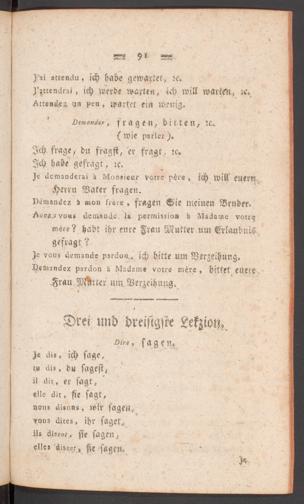 == 91 ==
J'ai attendu, ich habe gewartet, ꝛc.
J'attendrai, ich werde warten, ich will warten, ꝛc.
Attendez un peu, wartet ein wenig.
Demander, fragen, bitten, ꝛc.
(wie parler).
Ich frage, du fragst, er fragt, ꝛc.
Ich habe gefragt, ꝛc.
Je demanderai à Monsieur votre père, ich will euern
Herrn Vater fragen.
Demandez à mon frère, fragen Sie meinen Bruder.
Avez-vous demandé la permission à Madame votre
mère? habt ihr eure Frau Mutter um Erlaubnis
gefragt?
Je vous demande pardon, ich bitte um Verzeihung.
Demandez pardon à Madame votre mère, bittet euere
Frau Mutter um Verzeihung.
Drei und dreißigste Lekzion.
Dire, sagen.
Je dis, ich sage,
tu dis, du sagest,
il dit, er sagt,
elle dit, sie sagt,
nous disons, wir sagen,
vous dites, ihr saget,
ils disent, sie sagen,
elles disent, sie sagen.
Je